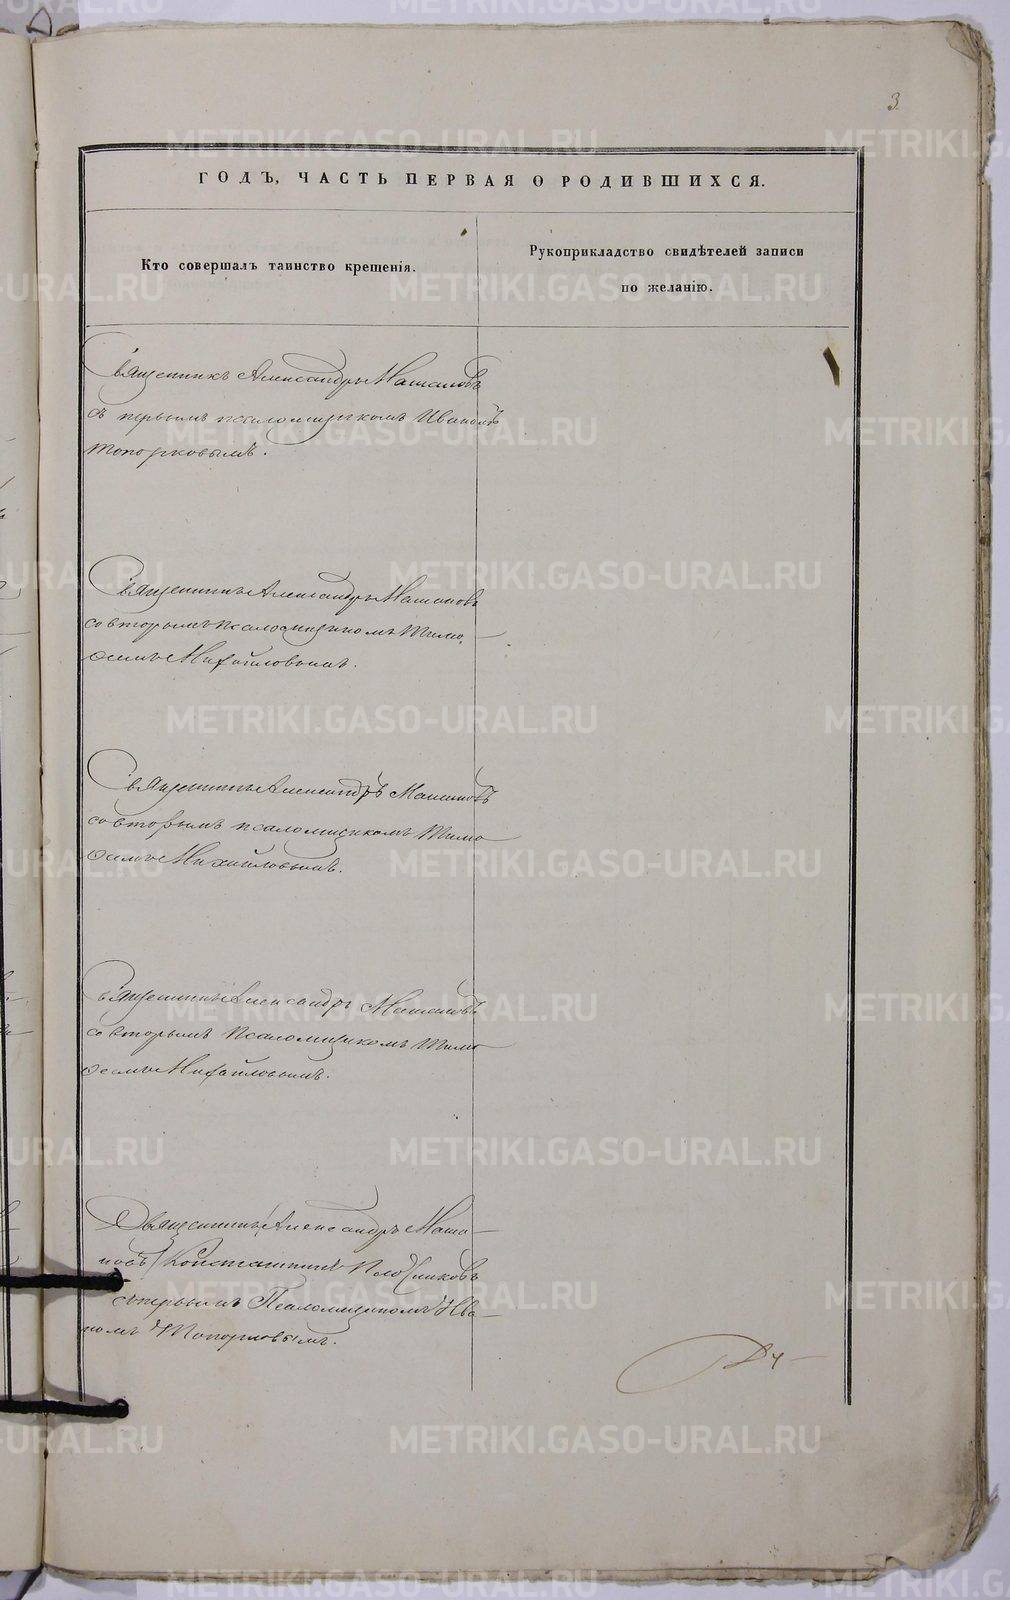 3.
ГОДЪ, ЧАСТЬ ПЕРВАЯ О РОДИВШИХСЯ.
Кто совершалъ таинство крещенія.
Рукоприкладство свидѣтелей записи
по желанію.
Священникъ Александръ
съ первымъ псаломщикомъ Иваномъ
Топорковымъ.
Священникъ Александръ
со вторымъ псаломщикомъ Тимо
ѳеемъ Михайловымъ.
Священникъ Александръ
со вторымъ псаломщикомъ Тимо
ѳеемъ Михайловымъ.
Священникъ Александръ
со вторымъ псаломщикомъ Тимо
ѳеемъ Михайловымъ.
Священникъ Александръ
Константинъ
съ первымъ Псаломщикомъ Ива-
номъ Топорковымъ.
METRIKI.GASO-URAL.RU